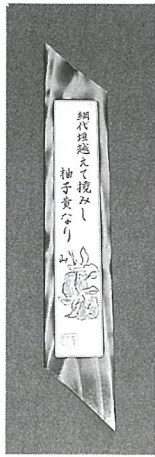 網代垣越えて撓みし
柚子黄なり